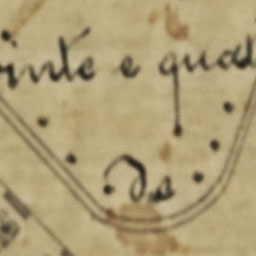 inte e qua
da